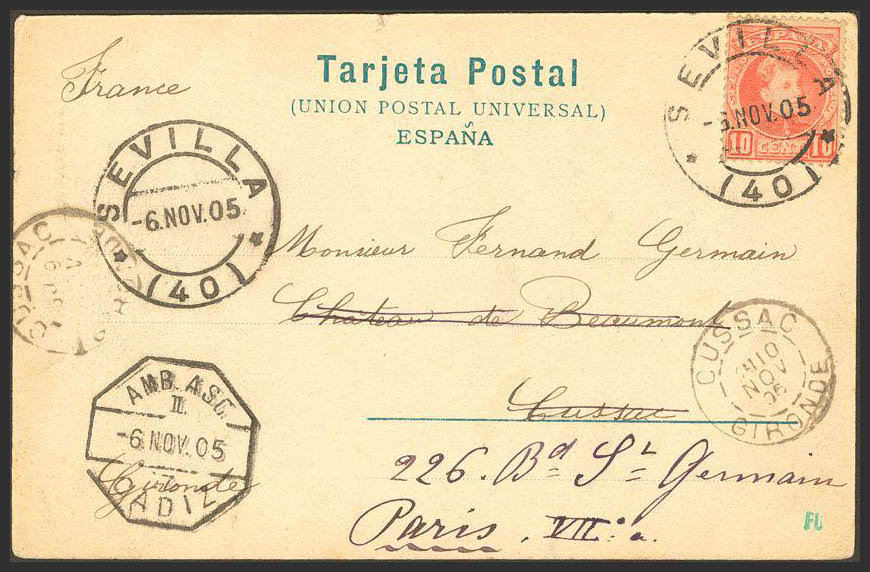 Tarjeta Postal
(UNION POSTAL UNIVERSAL)
ESPAÑA
France
SEVILLA
-6.NOV.05
(40)
ESPAÑA
10 CENT 10
SEVILLA
-6.NOV.05
(40)
Monsieur Fernand Germain
Château de Beaumont
Cussac
Gironde
226. Bd St Germain
Paris. VII. a.
CUSSAC
10
NOV
05
GIRONDE
CUSSAC
AMB.ASC.
II.
-6.NOV.05
CADIZ